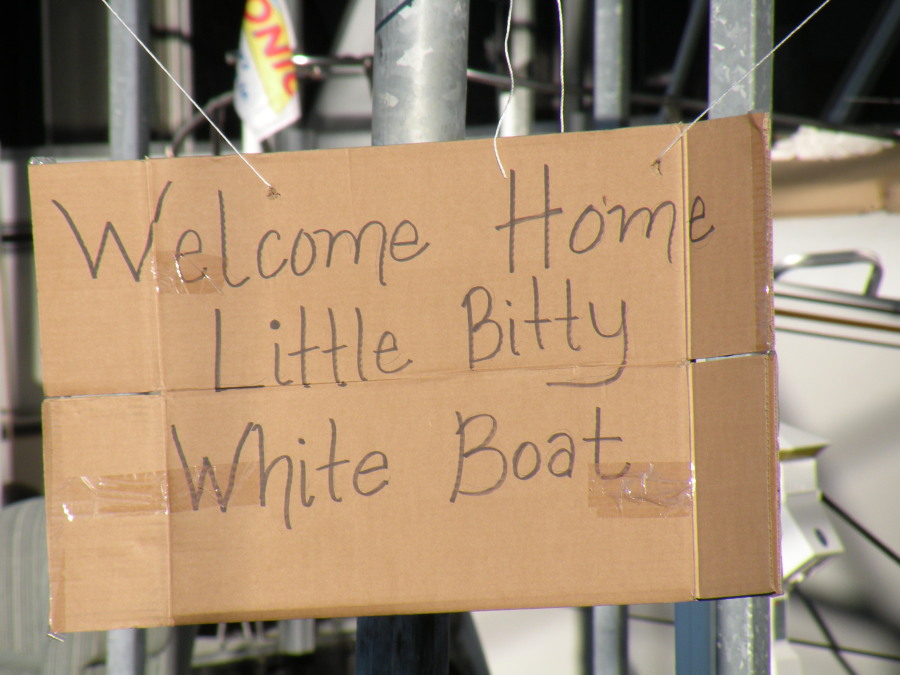 ONIC
Welcome Home
Little Bitty
White Boat